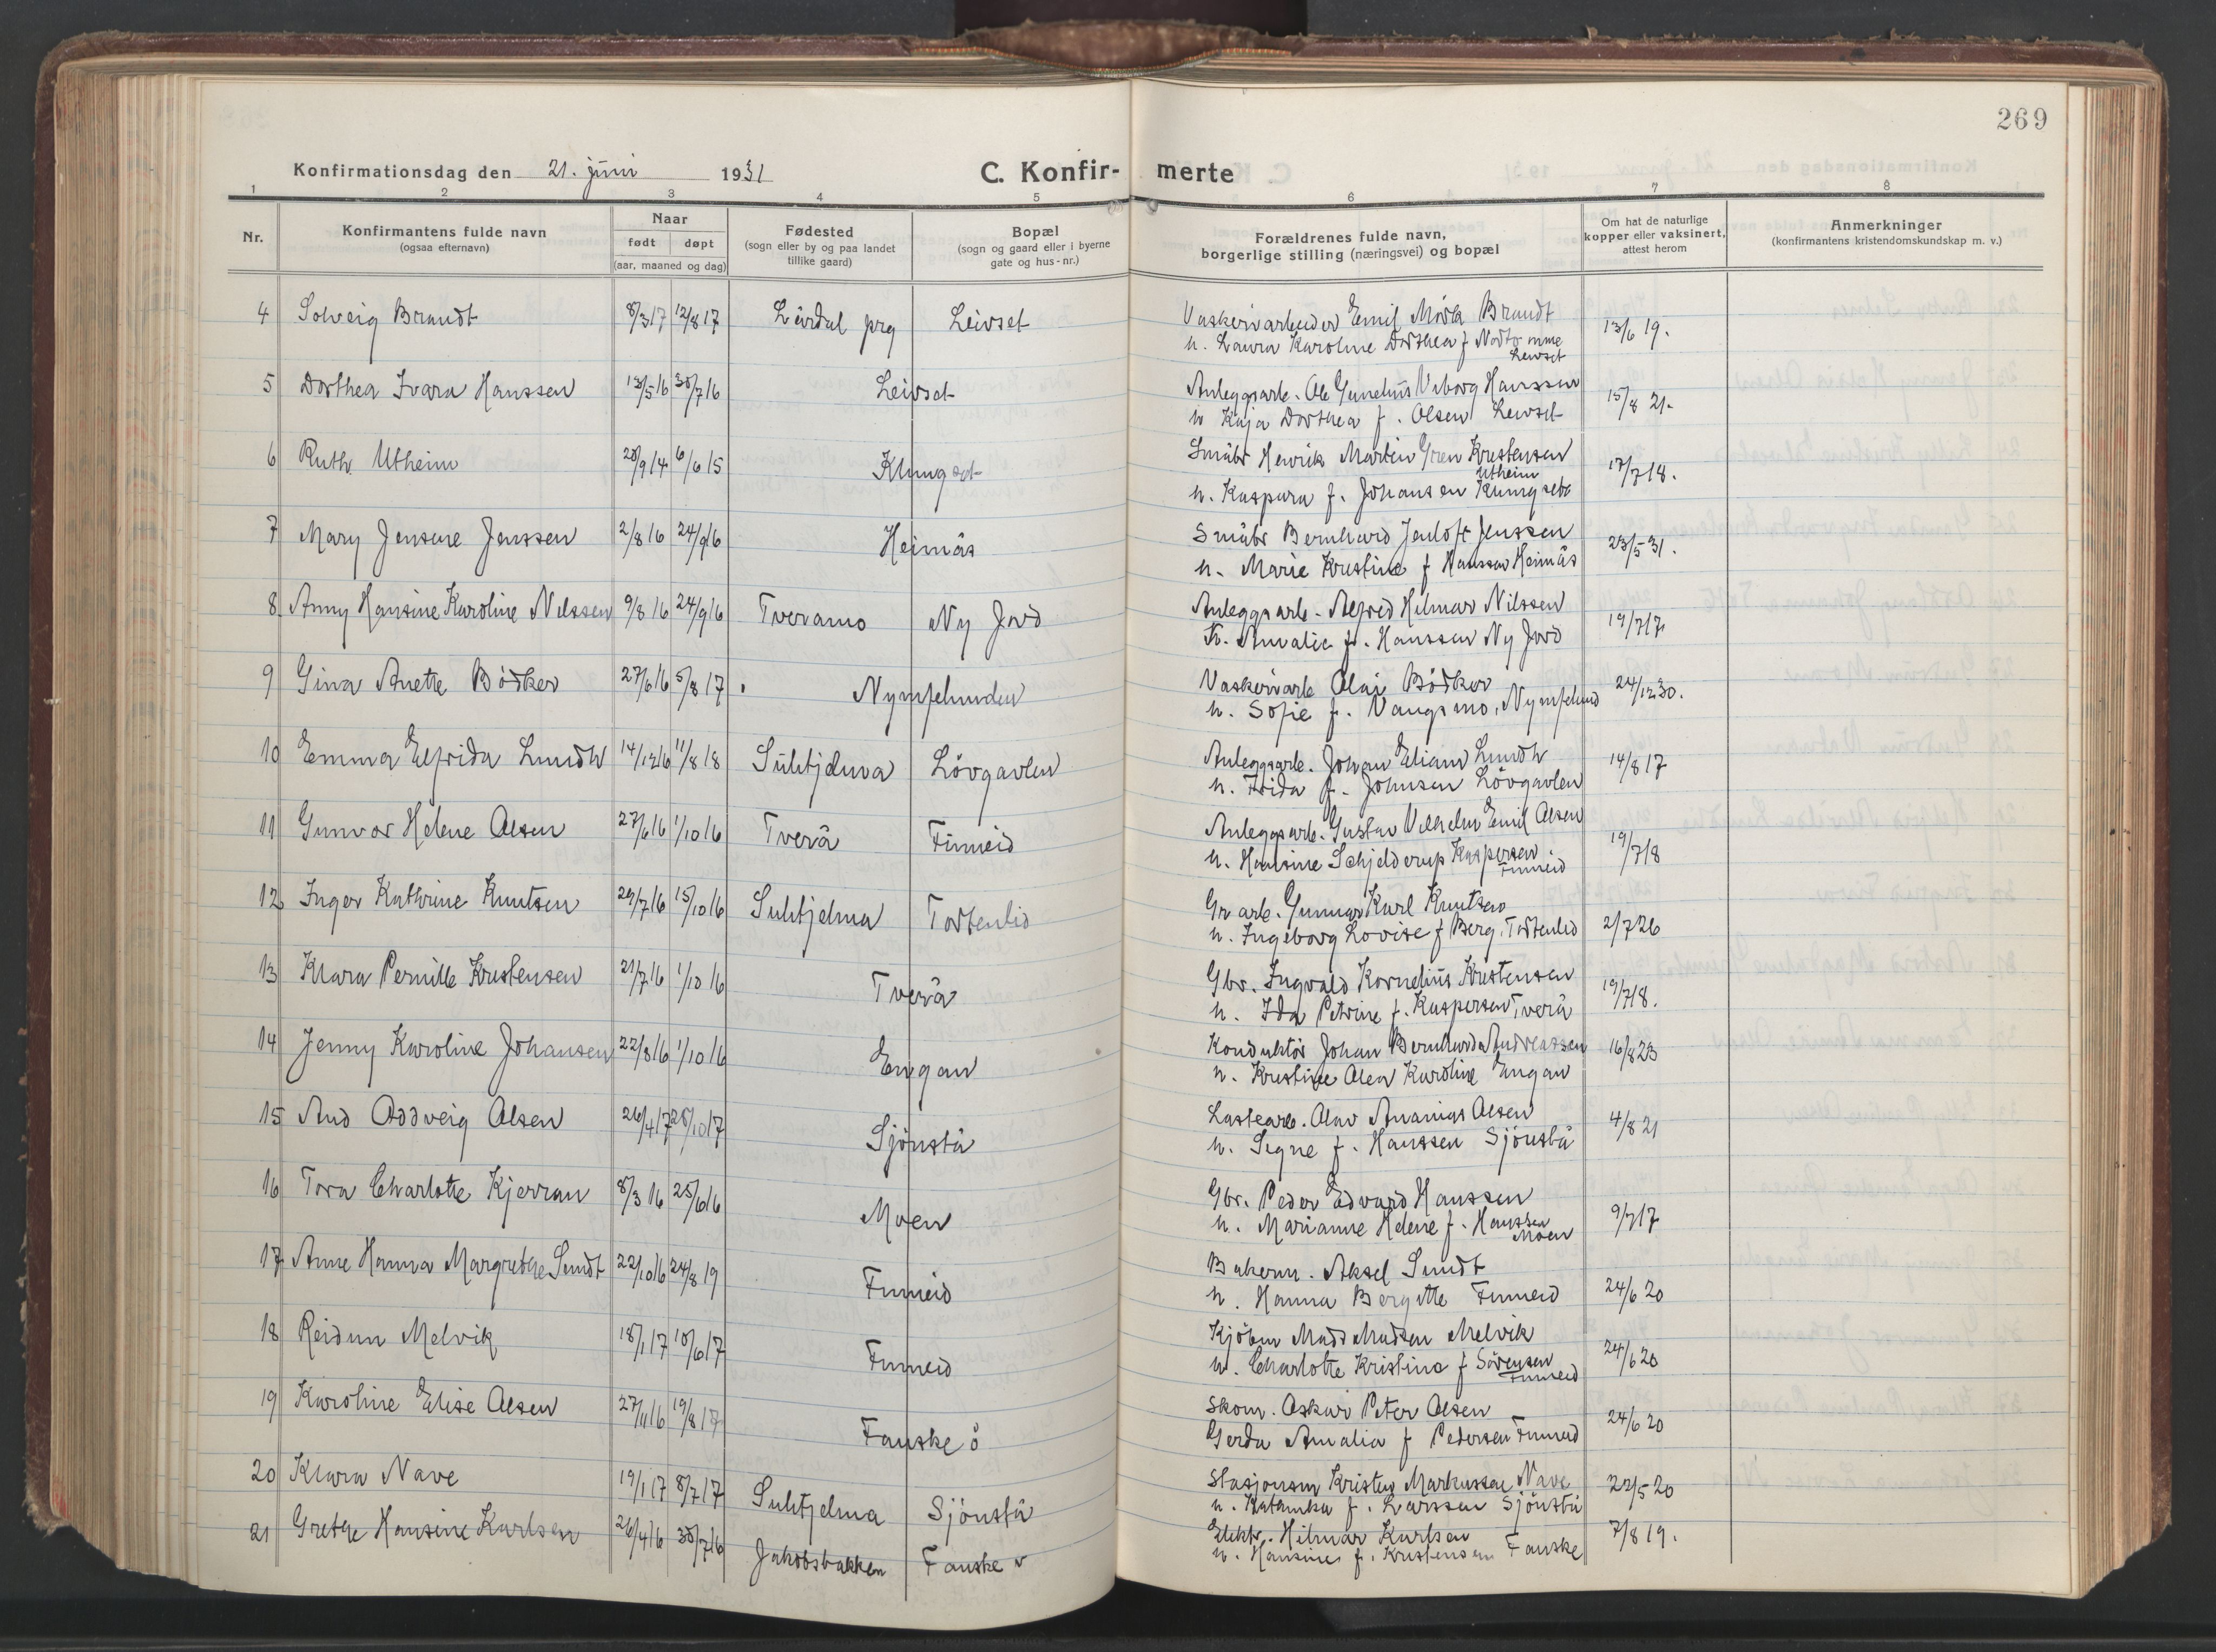 269
Konfirmationsdag den 21. juni 1931
C. Konfirmerte
1 2 3 4 5 6 7 8
Nr.
Konfirmantens fulde navn
(ogsaa efternavn)
Naar
født døpt
(aar, maaned og dag)
Fødested
(sogn eller by og paa landet
tillike gaard)
Bopæl
(sogn og gaard eller i byerne
gate og hus-nr.)
Forældrenes fulde navn,
borgerlige stilling (næringsvei) og bopæl
Om hat de naturlige
kopper eller vaksinert,
attest herom
Anmerkninger
(konfirmantens kristendomskundskap m. v.)
4 Solveig Brandt 8/3 17 12/8 17 prg Leivset Vaskeriarbeider Emil Brandt 13/6 19.
h. Laura Karoline Dorthea f
Leivset
5 Dorthea Ivara Hanssen 13/5 16 30/7 16 Leivset Anleggsarb. Ole Hanssen 15/8 21.
h Kaja Dorthea f. Olsen Leivset
6 Ruth Utheim 28/9 14 6/6 15 Klungset Småbr Henrik Martin Kristensen 17/7 18.
Utheim
h. Kaspara f. Johansen Klungset
7 Mary Jensine Jenssen 2/8 16 24/9 16 Heimås Småbr Bernhard Jenloft Jenssen 23/5 31.
h. Marie Kristine f Hanssen Heimås
8 Anny Hansine Karoline Nilssen 9/8 16 24/9 16 Tveramo Ny Jord Anleggsarb. Alfred Hilmar Nilssen 19/7 17
h. Amalie f. Hanssen Ny Jord
9 Gina Anette Bödker 27/6 16 5/8 17 Nymfelunden Vaskeriarb Olai Bödker 24/12 30.
h. Sofie f. Vangsmo, Nymfelund
10 Emma Elfrida Lundh 14/12 16 11/8 18 Sulitjelma Lövgavlen Anleggsarb. Johan Eliand Lundh 14/8 17
h. Frida f. Johnsen Lövgavlen
11 Gunvor Helene Olsen 27/6 16 1/10 16 Tverå Finneid Anleggsarb. Gustav Vilhelm Emil Olsen 19/7 18
h. Hansine Schjelderup Kaspersen
Finneid
12 Inger Kathrine Knutsen 29/7 16 15/10 16 Sulitjelma Tortenlid Gr arb. Gunnar Karl Knutsen 2/7 26
h. Ingeborg Lovise f Berg, Tortenlid
13 Klara Pernille Kristensen 21/7 16 1/10 16 Tverå Gbr. Ingvald Kornelius Kristensen 19/7 18.
h. Ida Petrine f. Kaspersen Tverå
14 Jenny Karoline Johansen 22/8 16 1/10 16 Engan Konduktör Johan Bernhard Andreassen 16/8 23
h. Kristine Olea Karoline Engan
15 Aud Oddveig Olsen 26/4 17 28/10 17 Sjönstå Lastearb. Olav Ananias Olsen 4/8 21
h. Signe f. Hanssen Sjönstå
16 Tora Charlotte Kjerran 8/3 16 25/6 16 Moen Gbr. Peder Edvard Hanssen 9/7 17
h. Marianne Helene f. Hanssen
Moen
17 Anne Hanna Margrethe Sundt 22/10 16 24/8 19 Finneid Bakerm. Aksel Sundt 24/6 20
h. Hanna Bergitte Finneid
18 Reidun Melvik 18/1 17 10/6 17 Finneid Kjöbm Mads Madsen Melvik 24/6 20
h. Charlotte Kristina f Sörensen
Finneid
19 Karoline Elise Olsen 27/11 16 19/8 17 Fauske ö Skom. Oskar Peter Olsen 24/6 20
Gerda Amalia f Pedersen Finneid
20 Klara Nave 19/1 17 8/7 17 Sulitjelma Sjönstå Stasjonsm Kristen Markussen Nave 22/5 20
h. f. Larssen Sjönstå
21 Grethe Hansine Karlsen 26/4 16 30/7 16 Jakobsbakken Fauske v Elektr. Hilmar Karlsen 7/8 19.
h. Hansine f. Kristensen Fauske